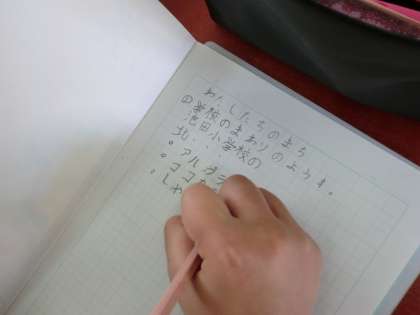 わたしたちのまち
①学校のまわりのようす。
池田小学校の
北…
・アルプラ
・ココカ
・しゃ